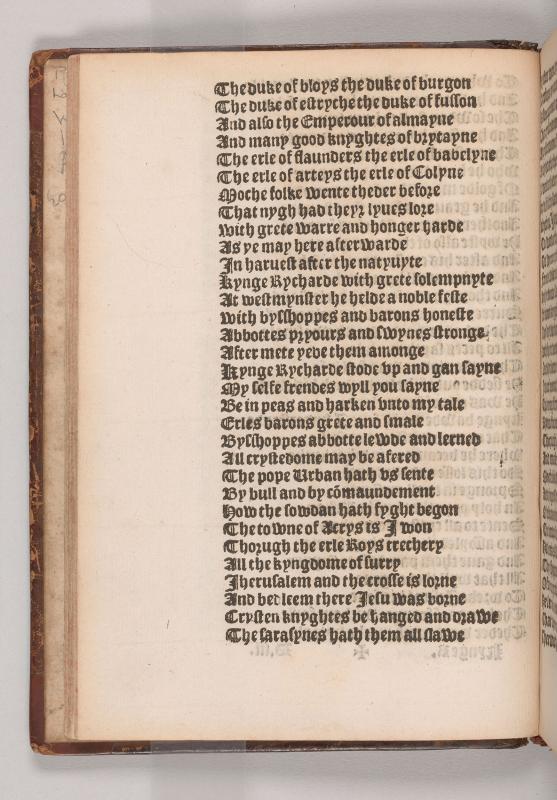 The duke of bloys the duke of burgon
The duke of estryche the duke of fusson
And also the Emperour of almayne
And many good knyghtes of brytayne
The erle of flaunders the erle of babelyne
The erle of arteys the erle of Colyne
Moche folke wente theder before
That nygh had theyr lyues lore
with grete warre and honger harde
As ye may here afterwarde
In haruest after the natyuyte
kynge Rycharde with grete solempnyte
At westmynster he helde a noble feste
with bysshoppes and barons honeste
Abbottes pryours and swynes stronge
After mete yede them amonge
Kynge Rycharde stode vp and gan sayne
My selfe frendes wyll you sayne
Be in peas and harken vnto my tale
Erles barons grete and smale
Bysshoppes abbotte lewde and lerned
All crystedome may be afered
The pope Urban hath vs sente
By bull and by cōmaundement
How the sowdan hath fyght begon
The towne of Acrys is I won
Thorugh the erle Roys trechery
All the kyngdome of surry
Jherusalem and the crosse is lorne
And bedleem there Jesu was borne
Crysten knyghtes be hanged and drawe
The sarasynes hath them all slawe